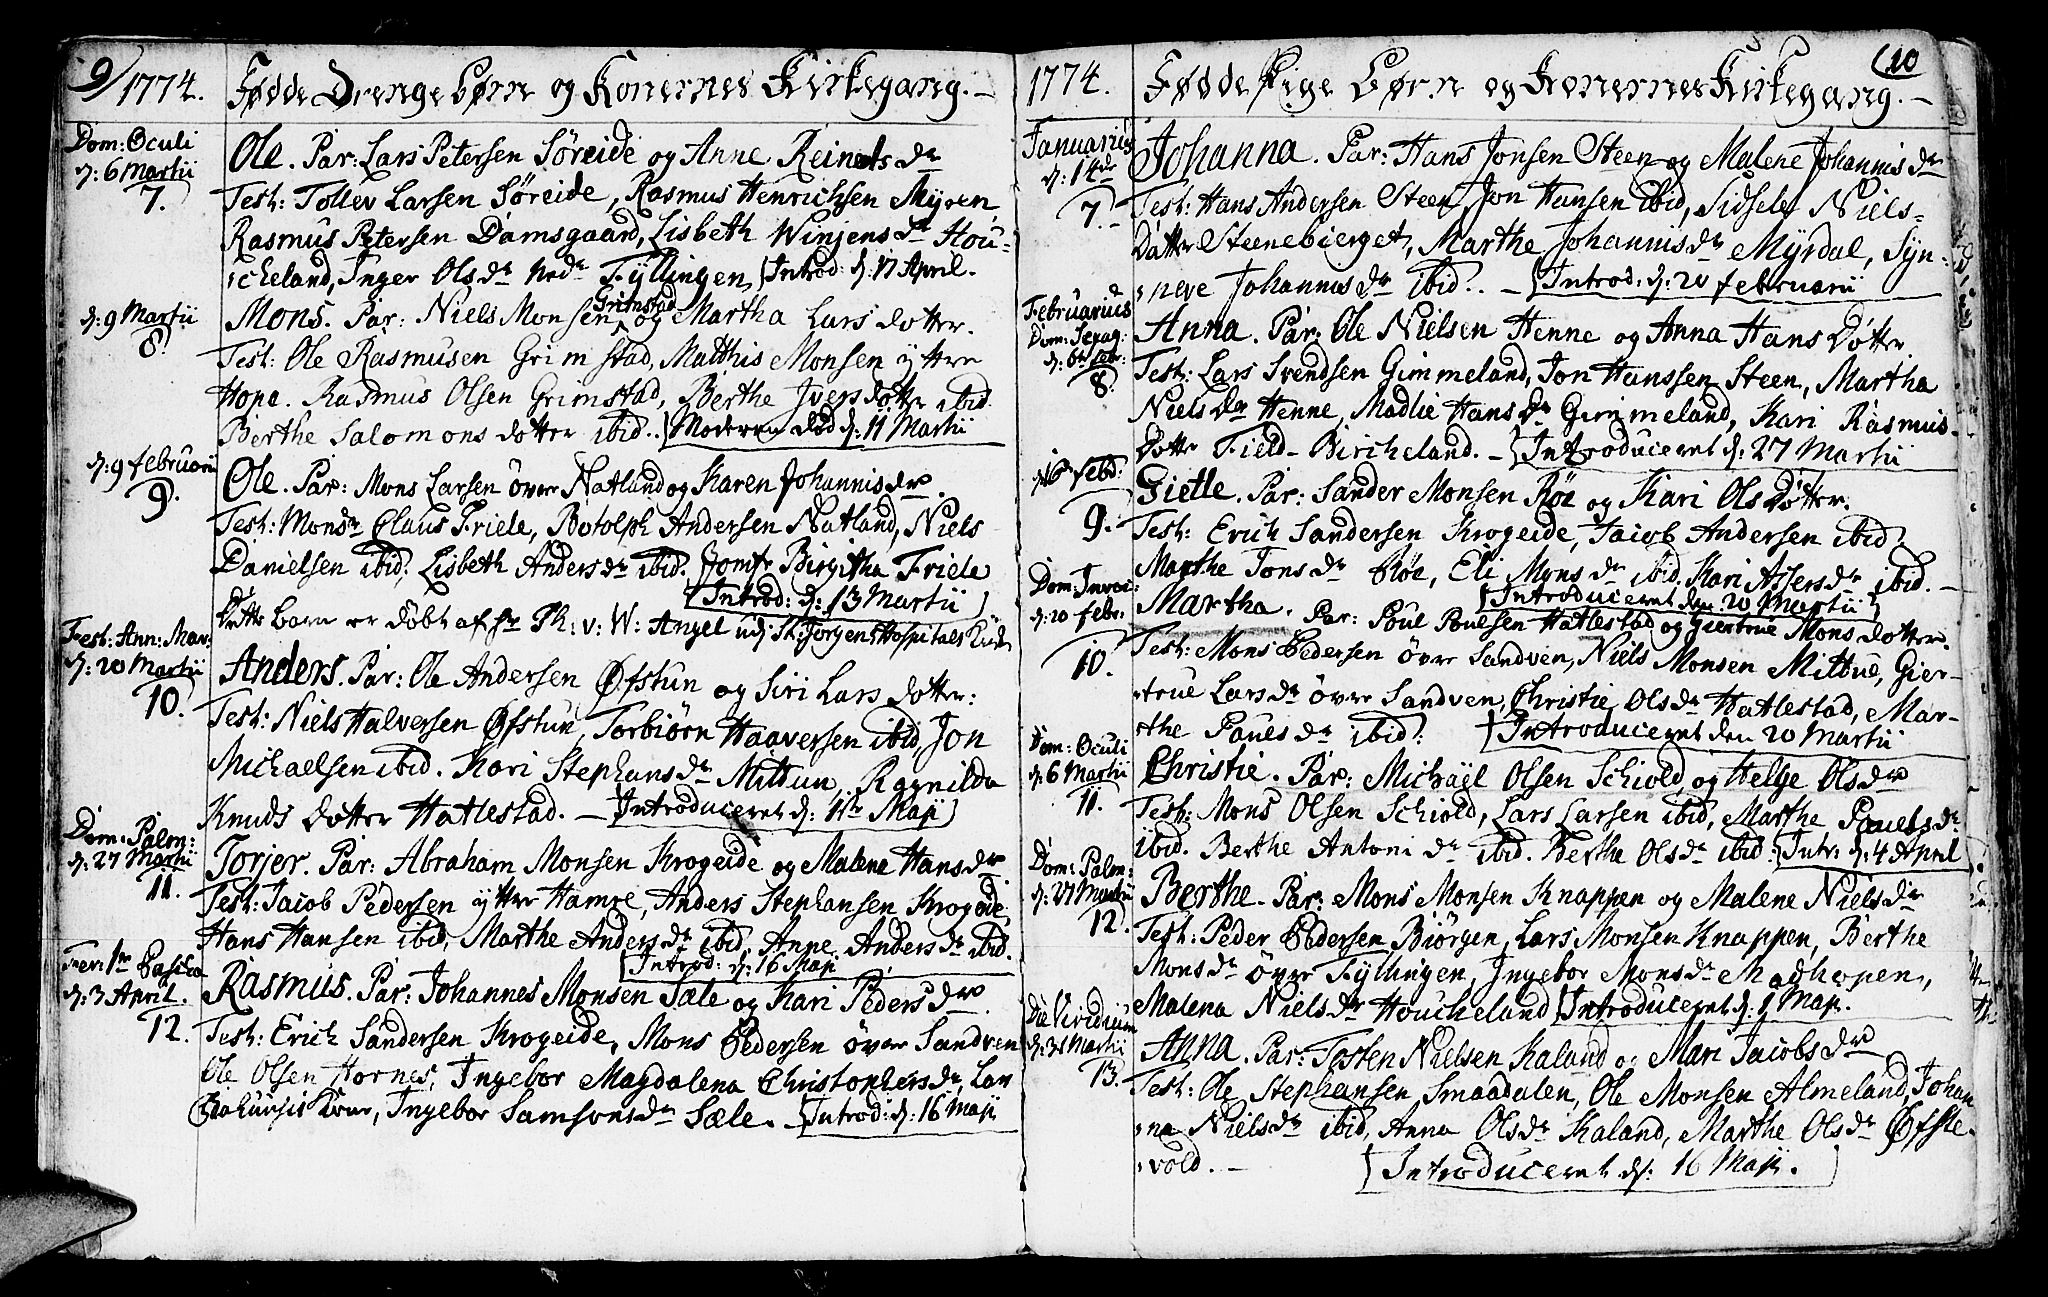 9/ 1774. Fødde Drenge børn og Konernes Kirkegang. –
Dom: Oculi
d: 6 Martii
7.
Ole. Par: Lars Petersen Søreide og Anne Reinetsdr
Test: Tollev Larsen Søreide, Rasmus Henrichsen Myren
Rasmus Petersen Damsgaard, Lisbeth Winjensdr Hou-
scheland, Inger Olsdr nedr Fyllingen, Introd: d: 17 April.
d: 9 Martii
8.
Mons. Par: Niels Monsen Grimstad og Martha Larsdotter.
Test: Ole Rasmusen Grimstad, Matthis Monsen yttre
Hope. Rasmus Olsen Grimstad, Berthe Iversdotter ibid.
Berthe Salomonsdotter ibid. Moderen død d: 11 Martii
d: 9 februarii
9.
Ole. Par: Mons Larsen øvre Natland og Karen Johannisdr.
Test: Monsr Claus Friele, Botolph Andersen Natland, Niels
Danielsen ibid. Lisbeth Andersdr ibid. Jomfr Birgitha Friele
Introd: d: 13 Martii
Dette barn er døbt af Hr Ph: v: W: Angel udj St: Jørgens Hospitals
Fest: Ann: Mar:
d: 20 Martii
10.
Anders. Par: Ole Andersen Øfstun og Siri Larsdotter:
Test: Niels Halversen Øfstun, Torbiørn Haaversen ibid, Jon
Michaelsen ibid. Kari Stephansdr Mildun, Ragnilda
Knudsdotter Hatlestad. – Introduceret d: 11te Maji
Dom: Palm:
d: 27 Martii
11.
Torjer. Par: Abraham Monsen Krogeide og Malene Hansdr
Test: Jacob Pedersen yttre Hamre, Anders Stephansen Krogeide,
Hans Hansen ibid, Marthe Andersdr ibid, Anne Andersdr ibid.
Introd: d: 16 Maji
Fer: 1ma Pascha
d: 3 April.
12.
Rasmus. Par: Johannes Monsen Sæle og Kari Pedersdr.
Test: Erich Sandersen Krogeide, Mons Pedersen øvre Sandven
Ole Olsen Hornes, Ingebor Magdalena Christophersdr, Lars
kone, Ingebor Samsonsdr Sæle. – Introd: d: 16 Maji
1774. Fødde Pige Børn og Konernes Kirkegang. – (10
Januarius
d: 14de
7.
Johanna. Par: Hans Jonsen Steen og Malene Johannisdr
Test: Hans Andersen Steen, Jon Hansen ibid, Sidsele Niels-
Dotter Steenebierget, Marthe Johannisdr Myrdal, Syn-
neve Johannisdr ibid. – Introd: d: 20 februarii
Februarius
Dom: Sexag:
d: 6te febr:
8.
Anna. Par: Ole Nielsen Henne og Anna Hans Dotter
Test: Lars Svendsen Gimmeland, Jon Hanssen Steen, Martha
Nielsdr Henne, Madlie Hansdr Gimmeland, Kari Rasmus-
Dotter Field-Bircheland. – Introduceret d: 27 Martii
d: 16 febr:
9.
Gietle. Par: Sander Monsen Røe og Kari Ols Dotter.
Test: Erich Sandersen Krogeide, Jacob Andersen ibid,
Marthe Jonsdr Røe, Eli Monsdr ibid, Kari Assersdr ibid. –
Introduceret den 20 Martii
Dom: Invoc:
d: 20 febr:
10.
Martha. Par: Poul Poulsen Hatlestad og Giertrue Monsdotter.
Test: Mons Pedersen øvre Sandven, Niels Monsen Mildue, Gier-
true Larsdr øvre Sandven, Christie Olsdr Hatlestad, Mar-
the Pouelsdr ibid: Introduceret den 20 Martii
Dom: Oculi
d: 6 Martii
11.
Christie. Par: Michael Olsen Schiold, og Helge Olsdr
Test: Mons Olsen Schiold, Lars Larsen ibid, Marthe Pouelsdr
ibid. Berthe Antonidr ibid. Berthe Olsdr ibid: Intr: d: 4 April
Dom: Palm:
d: 27 Martii
12.
Berthe. Par: Mons Monsen Knappen og Malene Nielsdr
Test: Peder Pedersen Biørgen, Lars Monsen Knappen, Berthe
Monsdr øvre Fyllingen, Ingebor Monsdr Madhopen,
Malena Nielsdr Houcheland Introduceret d: 1 Maji.
Die Viridium
d: 31 Martii
13.
Anna. Par: Tosten Nielsen Kaland og Mari Jacobsdr
Test: Ole Stephansen Smaadalen, Ole Monsen Almeland, Johan-
na Nielsdr ibid, Anna Olsdr Kaland, Marthe Olsdr Øfste-
vold. – Introduceret d: 16 Maji.